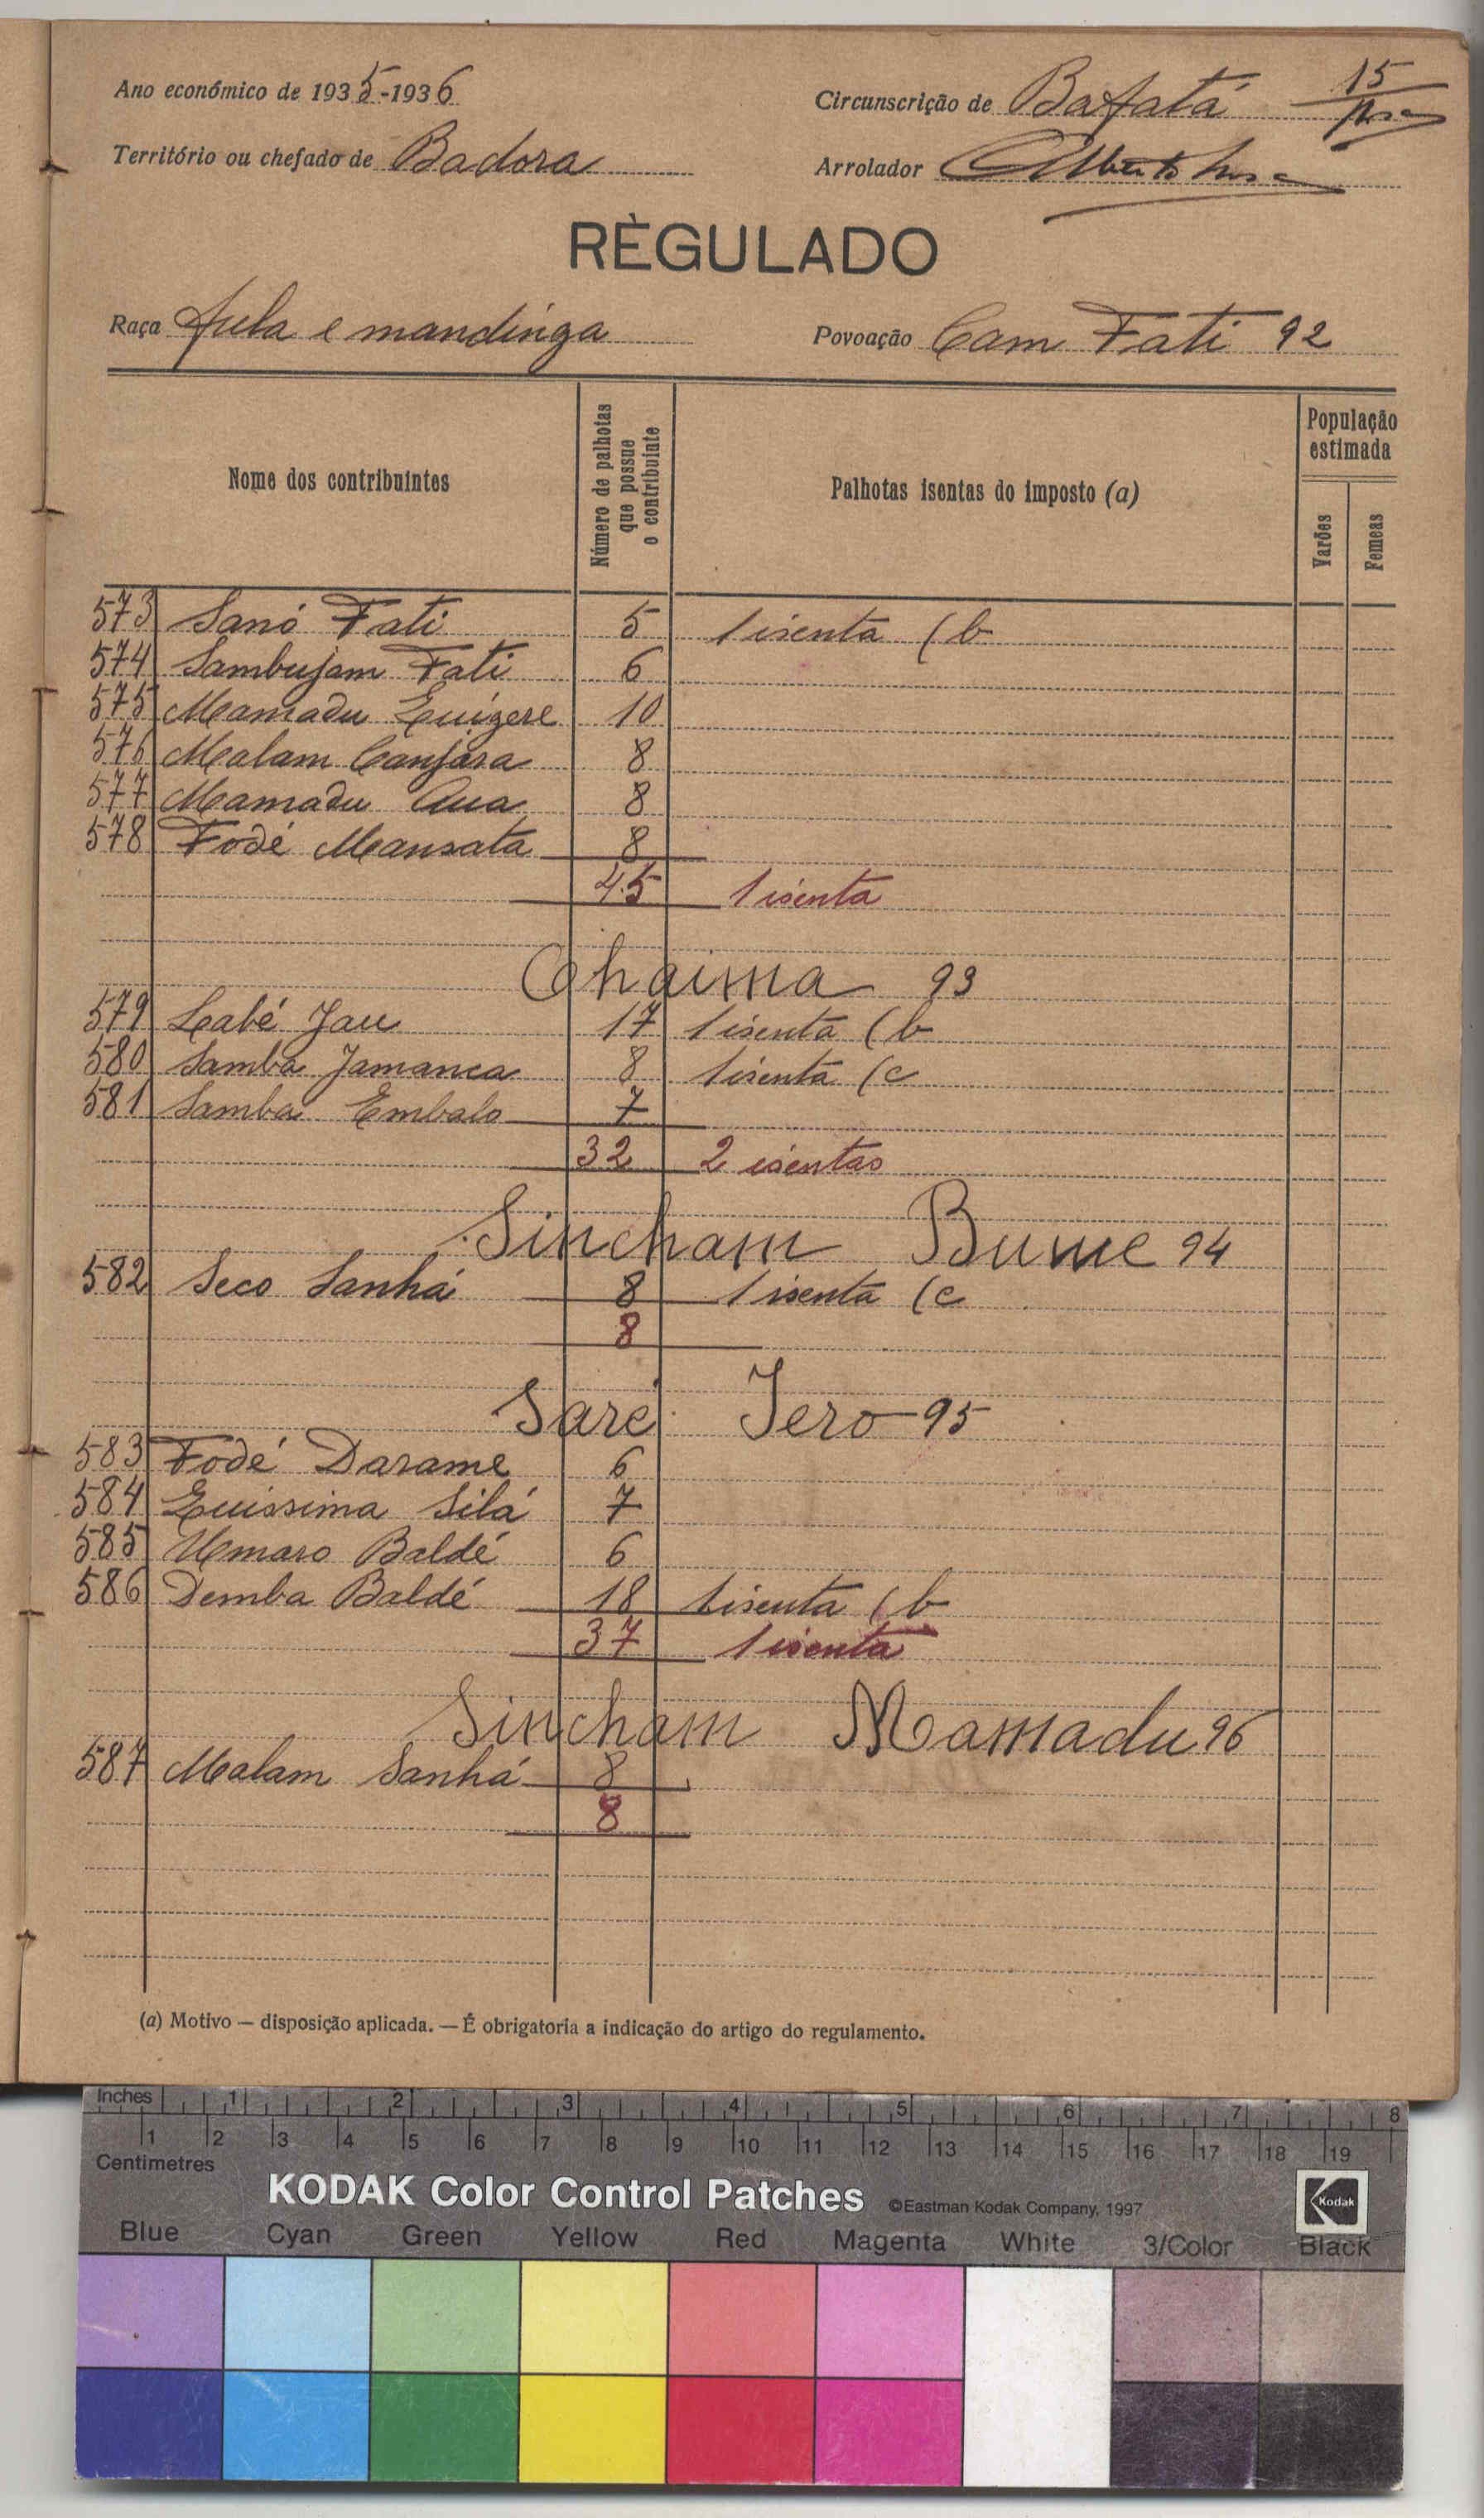 Ano económico de 1935-1936
Circunscrição de Bafatá 15
Território ou chefado de Badora
Arrolador Alberto
RÈGULADO
Raça fula e mandinga
Povoação Cam Fati 92
Nome dos contribuintes
Número de palhotas que possue o contribuinte
Palhotas isentas do imposto (a)
População estimada
Varões
Femeas
573 Sanó Fati 5 1 isenta (b
574 Sambujam Fati 6
575 Mamadu Quizere 10
576 Malam Canjára 8
577 Mamadu Aua 8
578 Fodé Mansata 8
45 1 isenta
Chaima 93
579 Labé Jau 17 1 isenta (b
580 Samba Jamanca 8 1 isenta (c
581 Samba Embalo 7
32 2 isentas
Sincham Bume 94
582 Seco Sanhá 8 1 isenta (c
8
Saré Iero 95
583 Fodé Darame 6
584 Quissima Silá 7
585 Umaro Baldé 6
586 Demba Baldé 18 1 isenta (b
37 1 isenta
Sincham Mamadu 96
587 Malam Sanhá 8
8
(a) Motivo — disposição aplicada. — É obrigatoria a indicação do artigo do regulamento.
Inches 1 2 3 4 5 6 7 8
1 2 3 4 5 6 7 8 9 10 11 12 13 14 15 16 17 18 19
Centimetres
KODAK Color Control Patches ©Eastman Kodak Company, 1997 Kodak
Blue Cyan Green Yellow Red Magenta White 3/Color Black